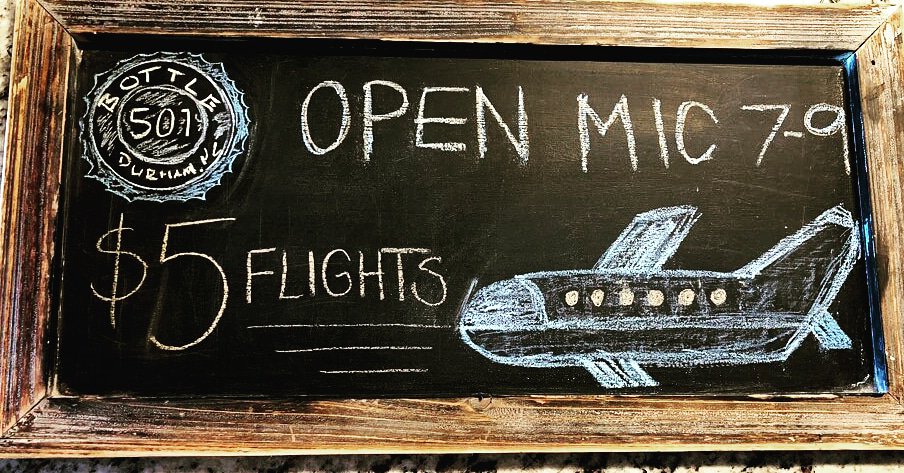 BOTTLE
501
DURHAM, NC
OPEN MIC 7-9
$5 FLIGHTS